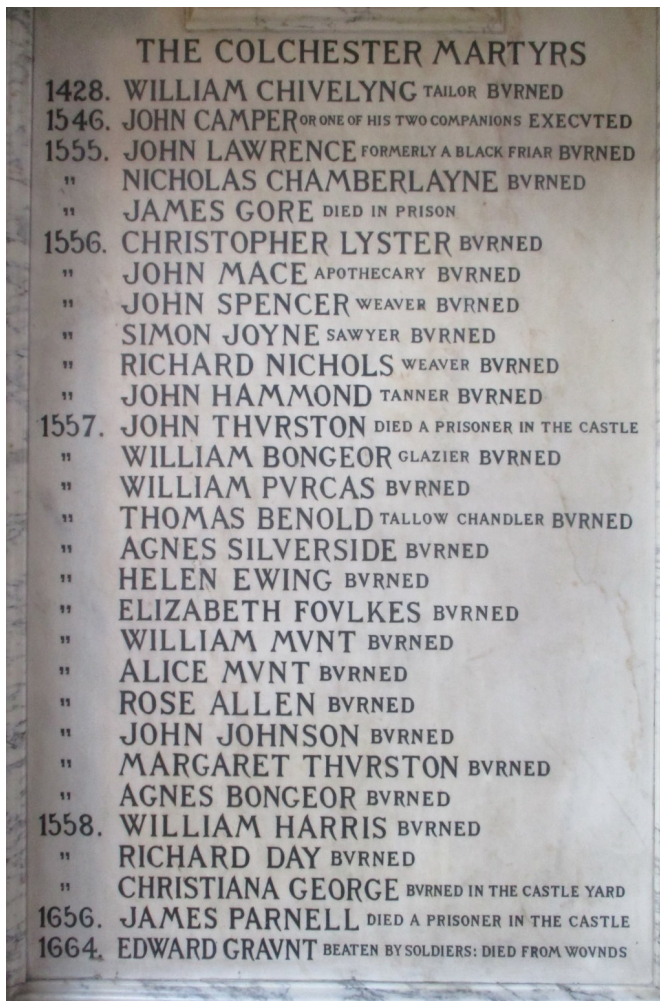 THE COLCHESTER MARTYRS
1428. WILLIAM CHIVELYNG TAILOR BVRNED
1546. JOHN CAMPER OR ONE OF HIS TWO COMPANIONS EXECVTED
1555. JOHN LAWRENCE FORMERLY A BLACK FRIAR BVRNED
" NICHOLAS CHAMBERLAYNE BVRNED
" JAMES GORE DIED IN PRISON
1556. CHRISTOPHER LYSTER BVRNED
" JOHN MACE APOTHECARY BVRNED
" JOHN SPENCER WEAVER BVRNED
" SIMON JOYNE SAWYER BVRNED
" RICHARD NICHOLS WEAVER BVRNED
" JOHN HAMMOND TANNER BVRNED
1557. JOHN THVRSTON DIED A PRISONER IN THE CASTLE
" WILLIAM BONGEOR GLAZIER BVRNED
" WILLIAM PVRCAS BVRNED
" THOMAS BENOLD TALLOW CHANDLER BVRNED
" AGNES SILVERSIDE BVRNED
" HELEN EWING BVRNED
" ELIZABETH FOVLKES BVRNED
" WILLIAM MVNT BVRNED
" ALICE MVNT BVRNED
" ROSE ALLEN BVRNED
" JOHN JOHNSON BVRNED
" MARGARET THVRSTON BVRNED
" AGNES BONGEOR BVRNED
1558. WILLIAM HARRIS BVRNED
" RICHARD DAY BVRNED
" CHRISTIANA GEORGE BVRNED IN THE CASTLE YARD
1656. JAMES PARNELL DIED A PRISONER IN THE CASTLE
1664. EDWARD GRAVNT BEATEN BY SOLDIERS: DIED FROM WOVNDS